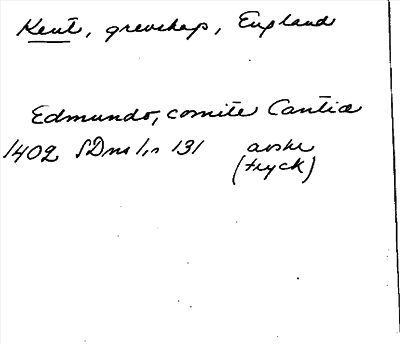 Kent, grevskap, England
Edmundo, comite Cantiæ
1402 SDns 1, s 131 avskr
(tryck)